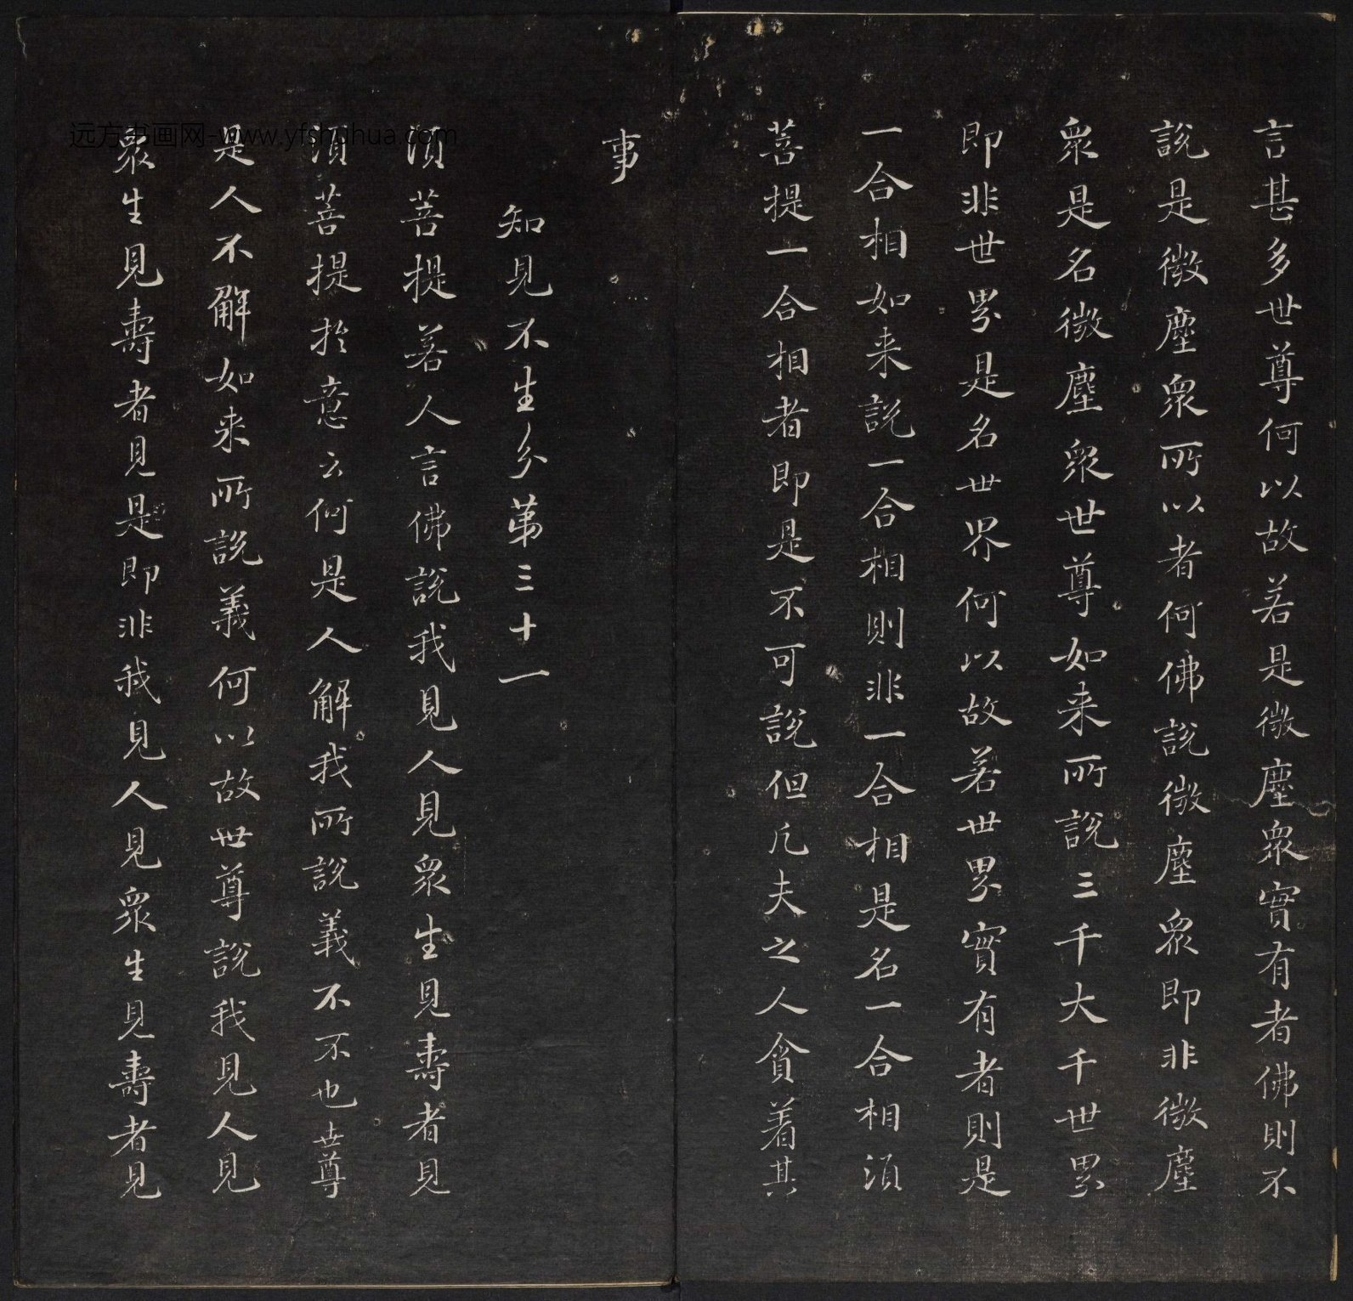 言甚多世尊何以故若是微塵眾實有者佛則不
說是微塵眾所以者何佛說微塵眾即非微塵
眾是名微塵眾世尊如来所說三千大千世界
即非世界是名世界何以故若世界實有者則是
一合相如来說一合相則非一合相是名一合相須
菩提一合相者即是不可說但凡夫之人貪着其
事
知見不生分第三十一
須菩提若人言佛說我見人見眾生見壽者見
須菩提於意云何是人解我所說義不不也世尊
是人不解如来所說義何以故世尊說我見人見
眾生見壽者見是即非我見人見眾生見壽者見
远方书画网-www.yfshuhua.com